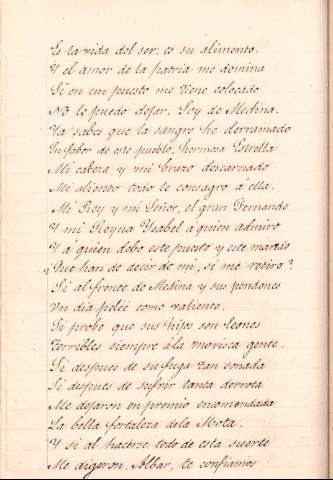 Es la vida del ser: es su alimento.
Y el amor de la patria me domina
Si en un puesto me tiene colocado
No lo puedo dejar. Soy de Medina.
Ya sabes que la sangre he derramado
En fabor de este pueblo, hermosa Estrella
Mi cabeza y mi brazo descarnado
Mi aliento todo le consagro á ella.
Mi Rey y mi Señor, el gran Fernando
Y mi Reyna Ysabel á quien admiro
Y á quien debo este puesto y este mando
¿Que han de decir de mi, si me retiro?
Si al frente de Medina y sus pendones
Un dia peleé como valiente.
Si probó que sus hijos son leones
Terribles siempre á la morisca gente.
Si despues de su fuga tan sonada
Si despues de sufrir tanta derrota
Me dejaron en premio encomendada
La bella fortaleza de la Mota.
Y si al hacerse todo de esta suerte
Me digeron. Albar, te confiamos